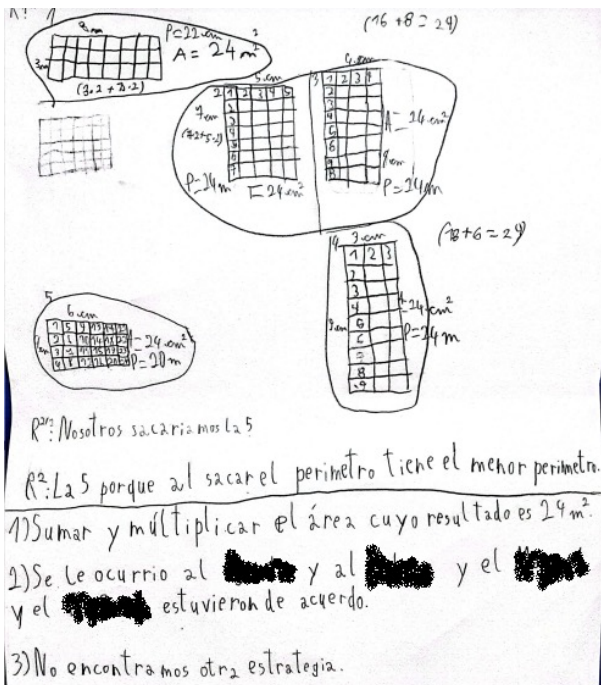 R: 1
8m
P=22cm
A=24m²
3m
(3.2+8.2)
(16+8=24)
5.cm
2 1 2 3 4 5
2
3
4
5
6
7
7cm
(7.2+5.2)
P=24m
24cm²
3 1 2 3 4
A=24cm²
P=24m
14 3.cm
1 2 3
2
3
4
5
6
7
8
9
9cm
24cm²
P=24m
(18+6=24)
5
6.cm
24cm²
P=20m
R²: Nosotros sacariamos la 5
R²: La 5 porque al sacar el perimetro tiene el menor perimetro.
1) Sumar y múltiplicar el área cuyo resultado es 24m².
2) Se le ocurrio al y al y el
y el estuvieron de acuerdo.
3) No encontramos otra estrategia.